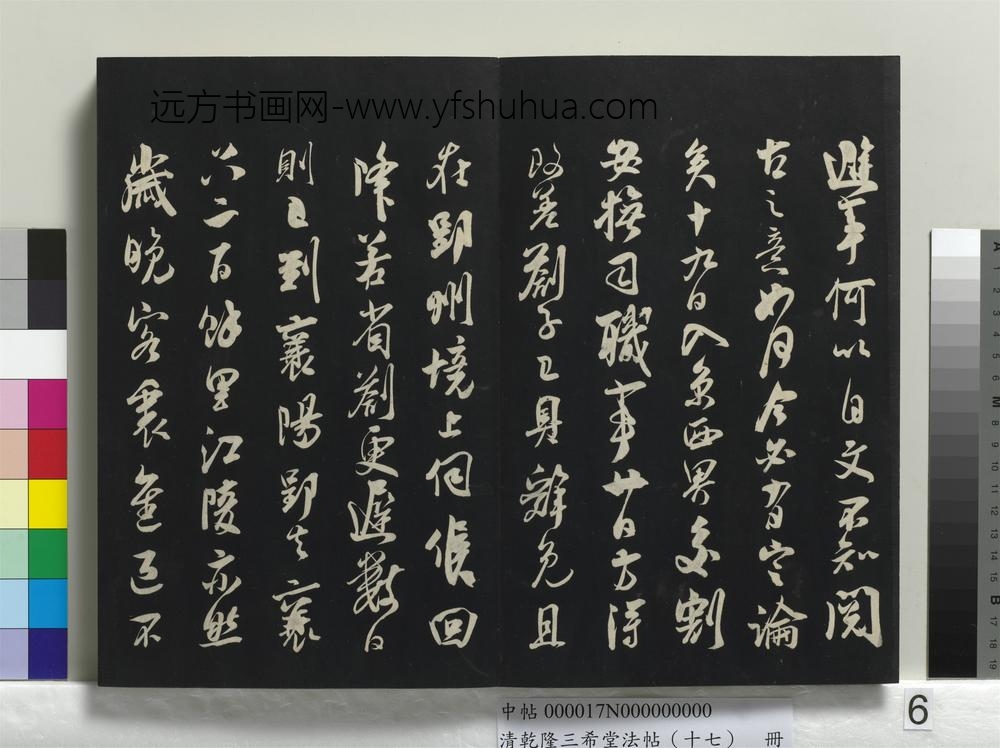 远方书画网-www.yfshuhua.com
率何以自文不知閤
古之意如何今必有定論
矣十九日入京西界交割
安撫司職事廿日方得
改差劄子已具辭免且
在郢州境上伺候回
降若省劄更遲數日
則已到襄陽郢去襄
二百餘里江陵亦然
歲晚客裏不
中帖 000017N000000000
清乾隆三希堂法帖（十七） 冊
6
A 1 2 3 4 5 6 M 8 9 10 11 12 13 14 15 B 17 18 19